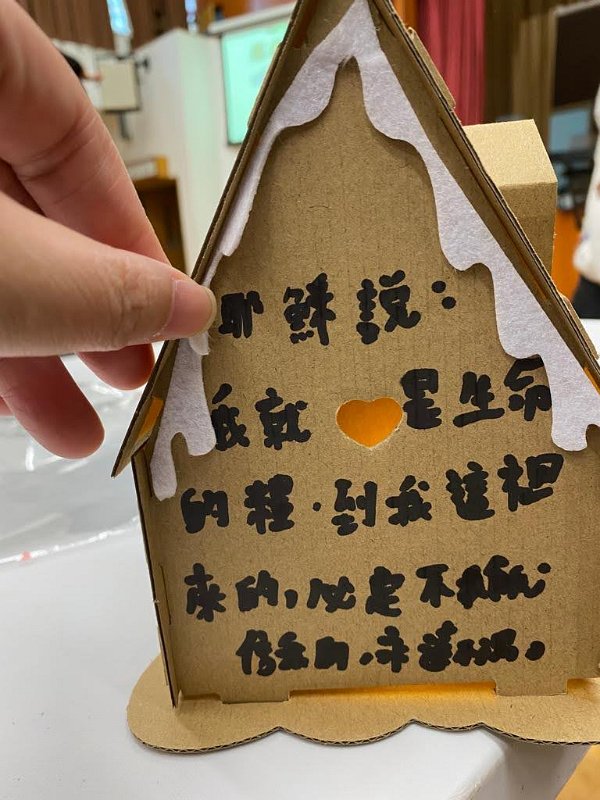 耶穌說：
我就是生命
的糧．到我這裡
來的，必定不飢餓；
信我的，永遠不渴。